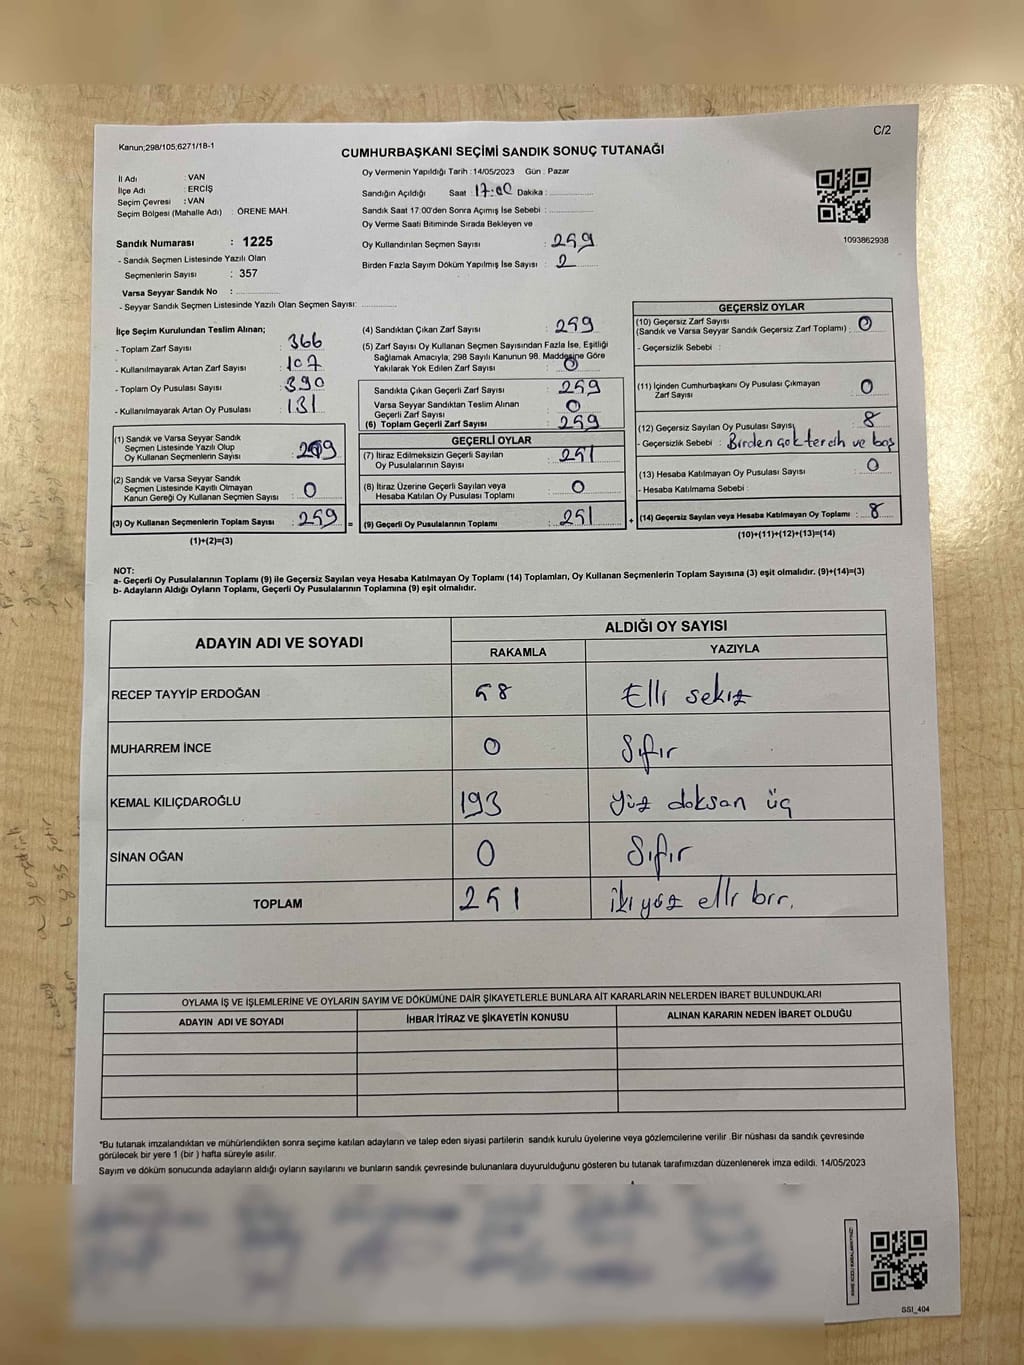 C/2
Kanun;298/105;6271/18-1
CUMHURBAŞKANI SEÇİMİ SANDIK SONUÇ TUTANAĞI
İl Adı : VAN
İlçe Adı : ERCİŞ
Seçim Çevresi : VAN
Seçim Bölgesi (Mahalle Adı) : ÖRENE MAH.
Sandık Numarası : 1225
- Sandık Seçmen Listesinde Yazılı Olan
Seçmenlerin Sayısı : 357
Varsa Seyyar Sandık No :
- Seyyar Sandık Seçmen Listesinde Yazılı Olan Seçmen Sayısı:
Oy Vermenin Yapıldığı Tarih : 14/05/2023 Gün : Pazar
Sandığın Açıldığı Saat : 17:00 Dakika :
Sandık Saat 17.00'den Sonra Açımış İse Sebebi :
Oy Verme Saati Bitiminde Sırada Bekleyen ve
Oy Kullandırılan Seçmen Sayısı : 259
Birden Fazla Sayım Döküm Yapılmış İse Sayısı : 2
1093862938
İlçe Seçim Kurulundan Teslim Alınan;
- Toplam Zarf Sayısı : 366
- Kullanılmayarak Artan Zarf Sayısı : 107
- Toplam Oy Pusulası Sayısı : 390
- Kullanılmayarak Artan Oy Pusulası : 131
(1) Sandık ve Varsa Seyyar Sandık
Seçmen Listesinde Yazılı Olup
Oy Kullanan Seçmenlerin Sayısı : 259
(2) Sandık ve Varsa Seyyar Sandık
Seçmen Listesinde Kayıtlı Olmayan
Kanun Gereği Oy Kullanan Seçmen Sayısı : 0
(3) Oy Kullanan Seçmenlerin Toplam Sayısı : 259 =
(1)+(2)=(3)
(4) Sandıktan Çıkan Zarf Sayısı : 259
(5) Zarf Sayısı Oy Kullanan Seçmen Sayısından Fazla İse, Eşitliği
Sağlamak Amacıyla, 298 Sayılı Kanunun 98. Maddesine Göre
Yakılarak Yok Edilen Zarf Sayısı : 0
Sandıkta Çıkan Geçerli Zarf Sayısı : 259
Varsa Seyyar Sandıktan Teslim Alınan
Geçerli Zarf Sayısı : 0
(6) Toplam Geçerli Zarf Sayısı : 259
GEÇERLİ OYLAR
(7) İtiraz Edilmeksizin Geçerli Sayılan
Oy Pusulalarının Sayısı : 251
(8) İtiraz Üzerine Geçerli Sayılan veya
Hesaba Katılan Oy Pusulası Toplamı : 0
(9) Geçerli Oy Pusulalarının Toplamı : 251 +
GEÇERSİZ OYLAR
(10) Geçersiz Zarf Sayısı
(Sandık ve Varsa Seyyar Sandık Geçersiz Zarf Toplamı) : 0
- Geçersizlik Sebebi :
(11) İçinden Cumhurbaşkanı Oy Pusulası Çıkmayan
Zarf Sayısı : 0
(12) Geçersiz Sayılan Oy Pusulası Sayısı : 8
- Geçersizlik Sebebi : Birden çok tercih ve boş
(13) Hesaba Katılmayan Oy Pusulası Sayısı : 0
- Hesaba Katılmama Sebebi :
(14) Geçersiz Sayılan veya Hesaba Katılmayan Oy Toplamı : 8
(10)+(11)+(12)+(13)=(14)
NOT:
a- Geçerli Oy Pusulalarının Toplamı (9) ile Geçersiz Sayılan veya Hesaba Katılmayan Oy Toplamı (14) Toplamları, Oy Kullanan Seçmenlerin Toplam Sayısına (3) eşit olmalıdır. (9)+(14)=(3)
b- Adayların Aldığı Oyların Toplamı, Geçerli Oy Pusulalarının Toplamına (9) eşit olmalıdır.
ADAYIN ADI VE SOYADI
ALDIĞI OY SAYISI
RAKAMLA YAZIYLA
RECEP TAYYİP ERDOĞAN 58 Elli sekiz
MUHARREM İNCE 0 Sıfır
KEMAL KILIÇDAROĞLU 193 yüz doksan üç
SİNAN OĞAN 0 Sıfır
TOPLAM 251 iki yüz elli bir.
OYLAMA İŞ VE İŞLEMLERİNE VE OYLARIN SAYIM VE DÖKÜMÜNE DAİR ŞİKAYETLERLE BUNLARA AİT KARARLARIN NELERDEN İBARET BULUNDUKLARI
ADAYIN ADI VE SOYADI İHBAR İTİRAZ VE ŞİKAYETİN KONUSU ALINAN KARARIN NEDEN İBARET OLDUĞU
*Bu tutanak imzalandıktan ve mühürlendikten sonra seçime katılan adayların ve talep eden siyasi partilerin sandık kurulu üyelerine veya gözlemcilerine verilir .Bir nüshası da sandık çevresinde
görülecek bir yere 1 (bir ) hafta süreyle asılır.
Sayım ve döküm sonucunda adayların aldığı oyların sayılarını ve bunların sandık çevresinde bulunanlara duyurulduğunu gösteren bu tutanak tarafımızdan düzenlenerek imza edildi. 14/05/2023
SSI_404